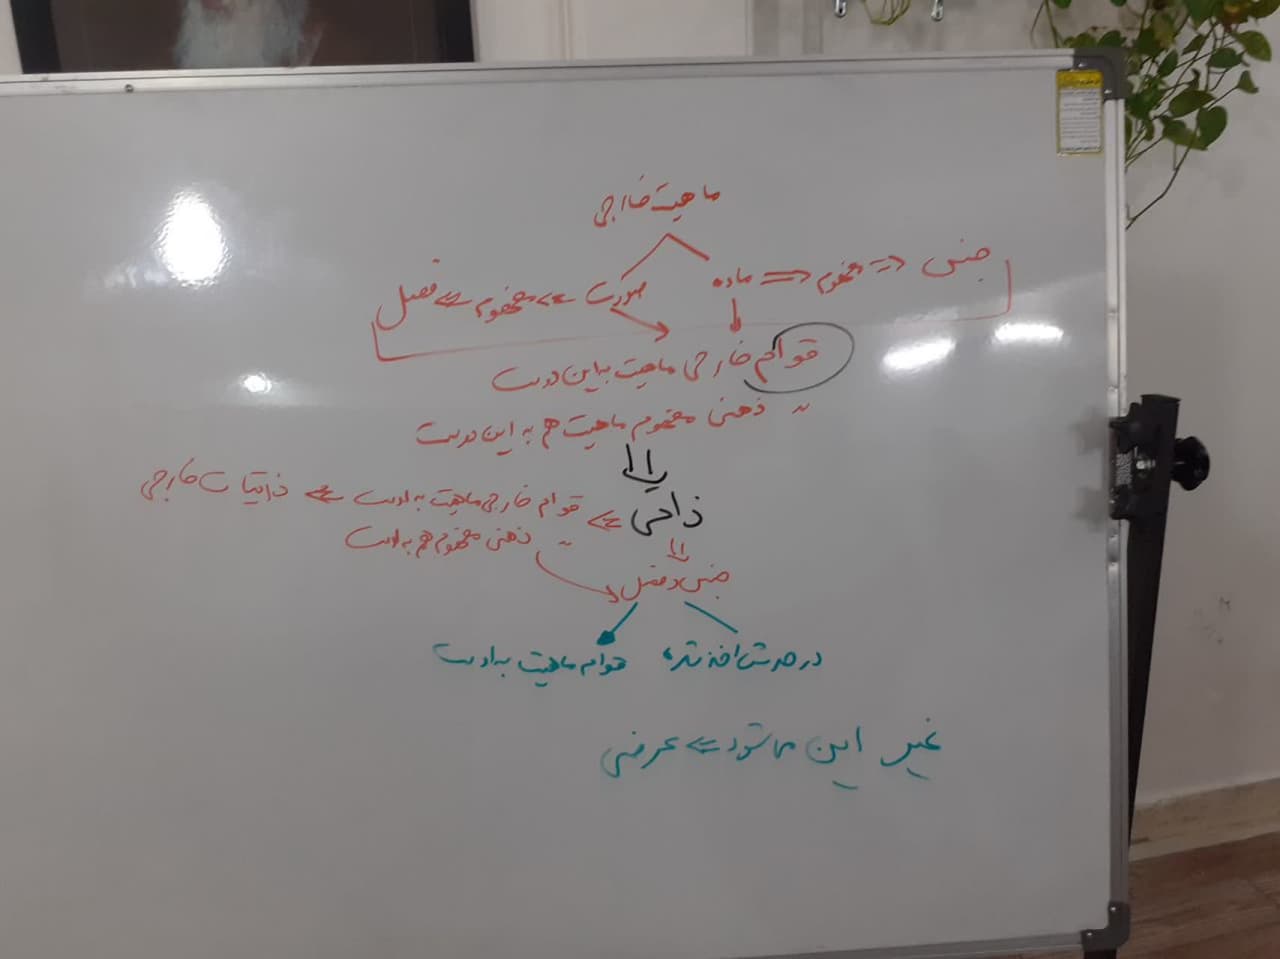 ماهیت خارجی
جنس ⇐ مفهوم ⇐ ماده صورت ⇒ مفهوم ⇒ فصل
قوام خارجی ماهیت به این دوست
〃 ذهنی مفهوم ماهیت هم به این دوست
⇓
ذاتی ⇒ قوام خارجی ماهیت به اوست ⇒ ذاتیات خارجی
〃 ذهنی مفهوم هم به اوست
⇓
جنس و فصل
در حدش اخذ شده قوام ماهیت به اوست
غیر این می شود ⇒ عرضی